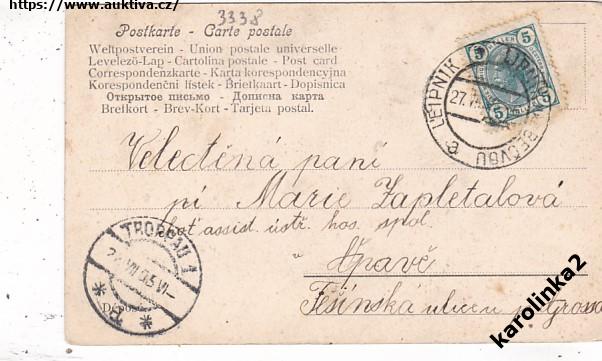 https://www.auktiva.cz/
3338
Postkarte - Carte postale
Weltpostverein - Union postale universelle
Levelező-Lap - Cartolina postale - Post card
Correspondenzkarte - Karta korespondencyjna
Korespondenční lístek - Briefkaart - Dopisnica
Открытое письмо - Дописна карта
Brefkort - Brev-Kort - Tarjeta postal.
5 5
5 5
LEIPNIK
27.VI
BEČVOU
Velectěná paní
pí Marie Zapletalová
choť assist. ústř. hos. spol.
v Opavě
Těšínská ulice u p. Grosse
TROPPAU 1
Dépose
karolinka2